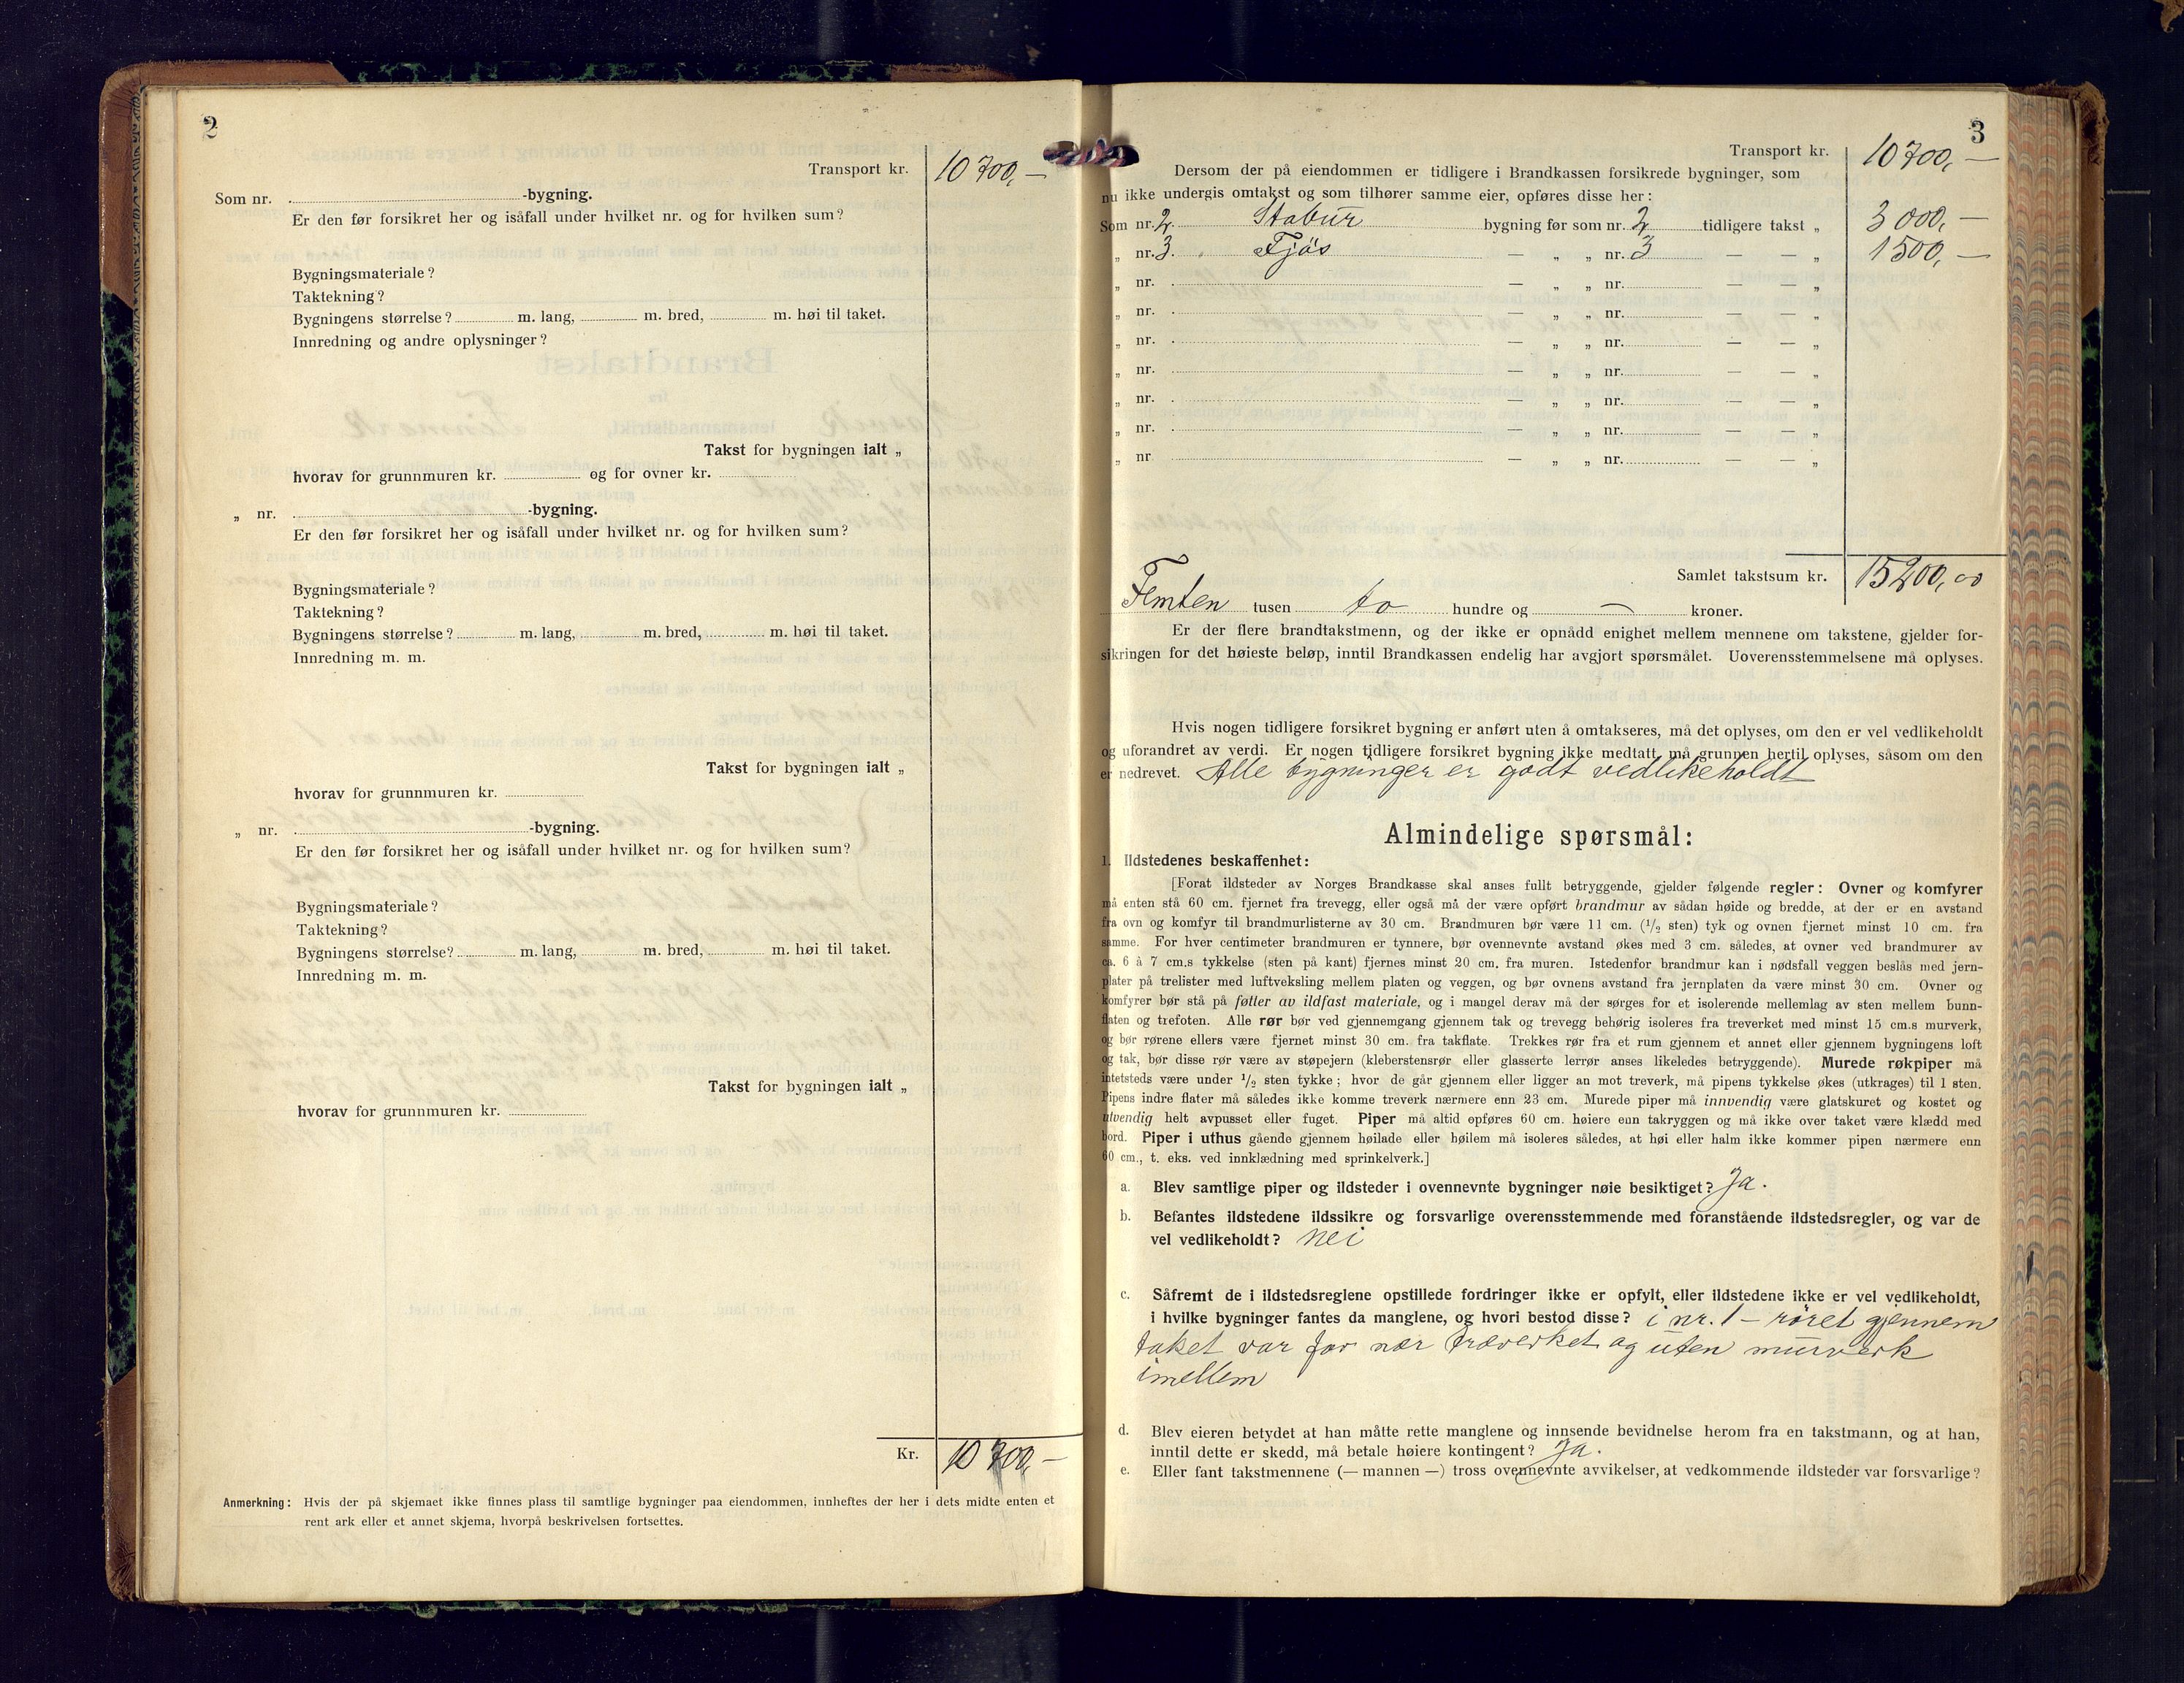 2
Transport kr. 10 700,—
Som nr. -bygning.
Er den før forsikret her og isåfall under hvilket nr. og for hvilken sum?
Bygningsmateriale?
Taktekning?
Bygningens størrelse? m. lang, m. bred, m. høi til taket.
Innredning og andre oplysninger?
Takst for bygningen ialt „
hvorav for grunnmuren kr. og for ovner kr.
„ nr. -bygning.
Er den før forsikret her og isåfall under hvilket nr. og for hvilken sum?
Bygningsmateriale?
Taktekning?
Bygningens størrelse? m. lang, m. bred, m. høi til taket.
Innredning m. m.
Takst for bygningen ialt „
hvorav for grunnmuren kr.
„ nr. -bygning.
Er den før forsikret her og isåfall under hvilket nr. og for hvilken sum?
Bygningsmateriale?
Taktekning?
Bygningens størrelse? m. lang, m. bred, m. høi til taket.
Innredning m. m.
Takst for bygningen ialt „
hvorav for grunnmuren kr.
Kr. 10 700,—
Anmerkning: Hvis der på skjemaet ikke finnes plass til samtlige bygninger paa eiendommen, innheftes der her i dets midte enten et
rent ark eller et annet skjema, hvorpå beskrivelsen fortsettes.
3
Transport kr. 10 700,—
Dersom der på eiendommen er tidligere i Brandkassen forsikrede bygninger, som
nu ikke undergis omtakst og som tilhører samme eier, opføres disse her:
Som nr. 2. Stabur bygning før som nr. 2 tidligere takst „ 3 000,—
„ nr. 3. Fjøs — „ „ nr. 3 — — „ 1 500,—
„ nr. — „ „ nr. — — „
„ nr. — „ „ nr. — — „
„ nr. — „ „ nr. — — „
„ nr. — „ „ nr. — — „
„ nr. — „ „ nr. — — „
„ nr. — „ „ nr. — — „
„ nr — „ „ nr. — — „
Samlet takstsum kr. 15200,00
Femten tusen to hundre og — kroner.
Er der flere brandtakstmenn, og der ikke er opnådd enighet mellem mennene om takstene, gjelder for-
sikringen for det høieste beløp, inntil Brandkassen endelig har avgjort spørsmålet. Uoverensstemmelsene må oplyses.
Hvis nogen tidligere forsikret bygning er anført uten å omtakseres, må det oplyses, om den er vel vedlikeholdt
og uforandret av verdi. Er nogen tidligere forsikret bygning ikke medtatt, må grunnen hertil oplyses, såsom om den
er nedrevet. Alle bygninger er godt vedlikeholdt
Almindelige spørsmål:
1. Ildstedenes beskaffenhet:
[Forat ildsteder av Norges Brandkasse skal anses fullt betryggende, gjelder følgende regler: Ovner og komfyrer
må enten stå 60 cm. fjernet fra trevegg, eller også må der være opført brandmur av sådan høide og bredde, at der er en avstand
fra ovn og komfyr til brandmurlisterne av 30 cm. Brandmuren bør være 11 cm. (1/2 sten) tyk og ovnen fjernet minst 10 cm. fra
samme. For hver centimeter brandmuren er tynnere, bør ovennevnte avstand økes med 3 cm. således, at ovner ved brandmurer av
ca. 6 à 7 cm.s tykkelse (sten på kant) fjernes minst 20 cm. fra muren. Istedenfor brandmur kan i nødsfall veggen beslås med jern-
plater på trelister med luftveksling mellem platen og veggen, og bør ovnens avstand fra jernplaten da være minst 30 cm. Ovner og
komfyrer bør stå på føtter av ildfast materiale, og i mangel derav må der sørges for et isolerende mellemlag av sten mellem bunn-
flaten og trefoten. Alle rør bør ved gjennemgang gjennem tak og trevegg behørig isoleres fra treverket med minst 15 cm.s murverk,
og bør rørene ellers være fjernet minst 30 cm. fra takflate. Trekkes rør fra et rum gjennem et annet eller gjennem bygningens loft
og tak, bør disse rør være av støpejern (kleberstensrør eller glasserte lerrør anses likeledes betryggende). Murede røkpiper må
intetsteds være under 1/2 sten tykke; hvor de går gjennem eller ligger an mot treverk, må pipens tykkelse økes (utkrages) til 1 sten.
Pipens indre flater må således ikke komme treverk nærmere enn 23 cm. Murede piper må innvendig være glatskuret og kostet og
utvendig helt avpusset eller fuget. Piper må altid opføres 60 cm. høiere enn takryggen og må ikke over taket være klædd med
bord. Piper i uthus gående gjennem høilade eller høilem må isoleres således, at høi eller halm ikke kommer pipen nærmere enn
60 cm., t. eks. ved innklædning med sprinkelverk.]
a. Blev samtlige piper og ildsteder i ovennevnte bygninger nøie besiktiget? Ja.
b. Befantes ildstedene ildssikre og forsvarlige overensstemmende med foranstående ildstedsregler, og var de
vel vedlikeholdt? nei
c. Såfremt de i ildstedsreglene opstillede fordringer ikke er opfylt, eller ildstedene ikke er vel vedlikeholdt,
i hvilke bygninger fantes da manglene, og hvori bestod disse? i nr. 1 – røret gjennem
taket var for nær træverket og uten murverk
imellem
d. Blev eieren betydet at han måtte rette manglene og innsende bevidnelse herom fra en takstmann, og at han,
inntil dette er skedd, må betale høiere kontingent? Ja.
e. Eller fant takstmennene (— mannen —) tross ovennevnte avvikelser, at vedkommende ildsteder var forsvarlige?